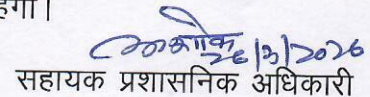 हेगा।
26/3/2026
सहायक प्रशासनिक अधिकारी